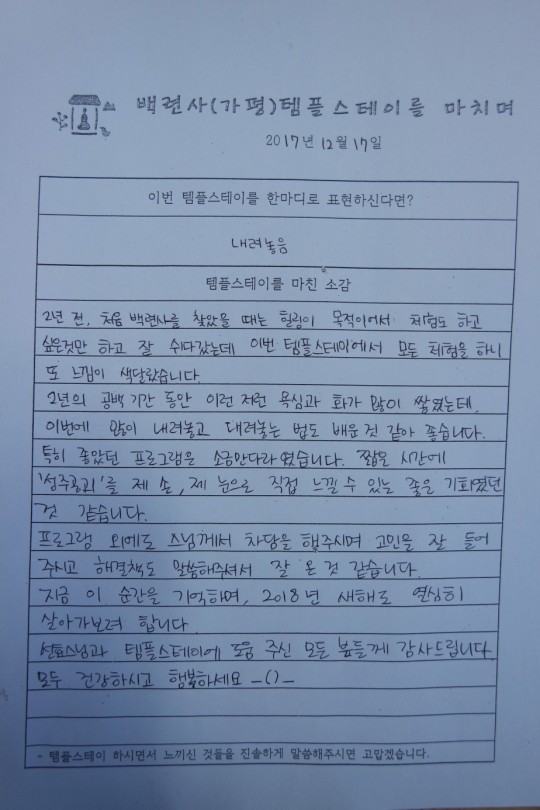 백련사(가평)템플스테이를 마치며
2017년 12월 17일
이번 템플스테이를 한마디로 표현하신다면?
내려놓음
템플스테이를 마친 소감
2년 전, 처음 백련사를 찾았을 때는 힐링이 목적이어서 체험도 하고
싶은것만 하고 잘 쉬다갔는데 이번 템플스테이에서 모든 체험을 하니
또 느낌이 색달랐습니다.
2년의 공백 기간 동안 이런 저런 욕심과 화가 많이 쌓였는데,
이번에 많이 내려놓고 내려놓는 법도 배운 것 같아 좋습니다.
특히 좋았던 프로그램은 소금만다라였습니다. 짧은 시간에
'성주괴공'을 제 손, 제 눈으로 직접 느낄 수 있는 좋은 기회였던
것 같습니다.
프로그램 외에도 스님께서 차담을 해주시며 고민을 잘 들어
주시고 해결책도 말씀해주셔서 잘 온 것 같습니다.
지금 이 순간을 기억하며, 2018년 새해도 열심히
살아가보려 합니다.
선효스님과 템플스테이에 도움 주신 모든 분들께 감사드립니다.
모두 건강하시고 행복하세요 _()_
- 템플스테이 하시면서 느끼신 것들을 진솔하게 말씀해주시면 고맙겠습니다.